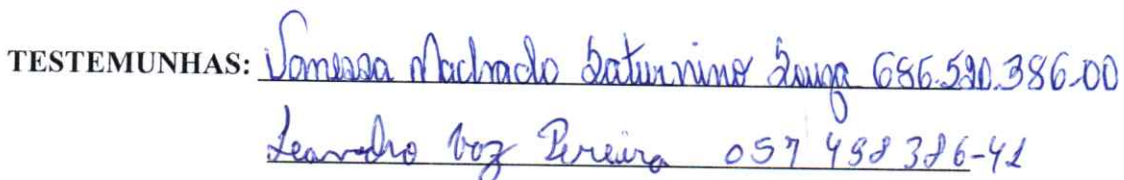 TESTEMUNHAS: Vanessa Machado Saturnino Souza 686.590.386-00
Leandro Vaz Pereira 057 498 386-41